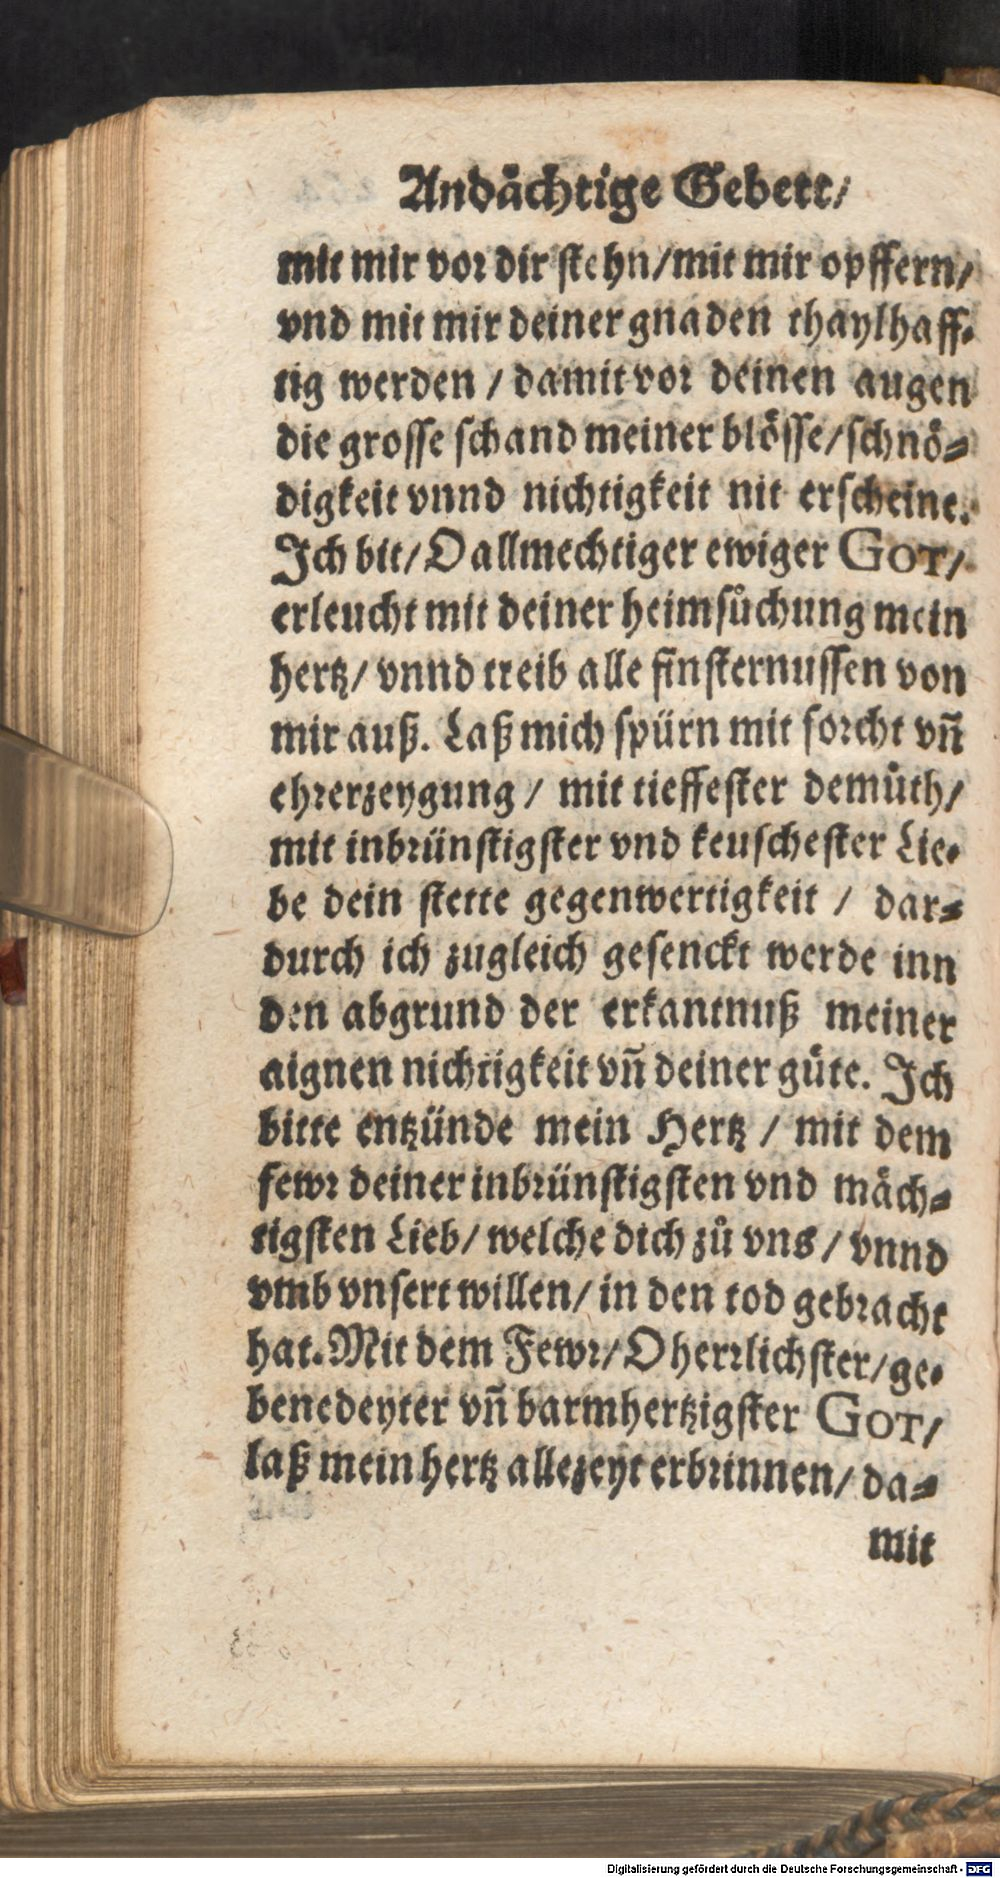 Andächtige Gebett/
mit mir vor dir stehn/mit mir opffern/
vnd mit mir deiner gnaden thaylhaff-
tig werden / damit vor deinen augen
die grosse schand meiner blösse/schnö-
digkeit vnnd nichtigkeit nit erscheine.
Ich bit/ O allmechtiger ewiger GOT/
erleucht mit deiner heimsůchung mein
hertz/ vnnd treib alle finsternussen von
mir auß. Laß mich spürn mit forcht vñ
ehrerzeygung / mit tieffester demůth/
mit inbrünstigster vnd keuschester Lie-
be dein stette gegenwertigkeit / dar-
durch ich zugleich gesenckt werde inn
den abgrund der erkantnuß meiner
aignen nichtigkeit vñ deiner güte. Ich
bitte entzünde mein Hertz / mit dem
fewr deiner inbrünstigsten vnd mäch-
tigsten Lieb/ welche dich zů vns / vnnd
vmb vnsert willen/ in den tod gebracht
hat. Mit dem Fewr/ O herrlichster/ge-
benedeyter vñ barmhertzigster GOT/
laß mein hertz allezeyt erbrinnen/ da-
mit
Digitalisierung gefördert durch die Deutsche Forschungsgemeinschaft - DFG